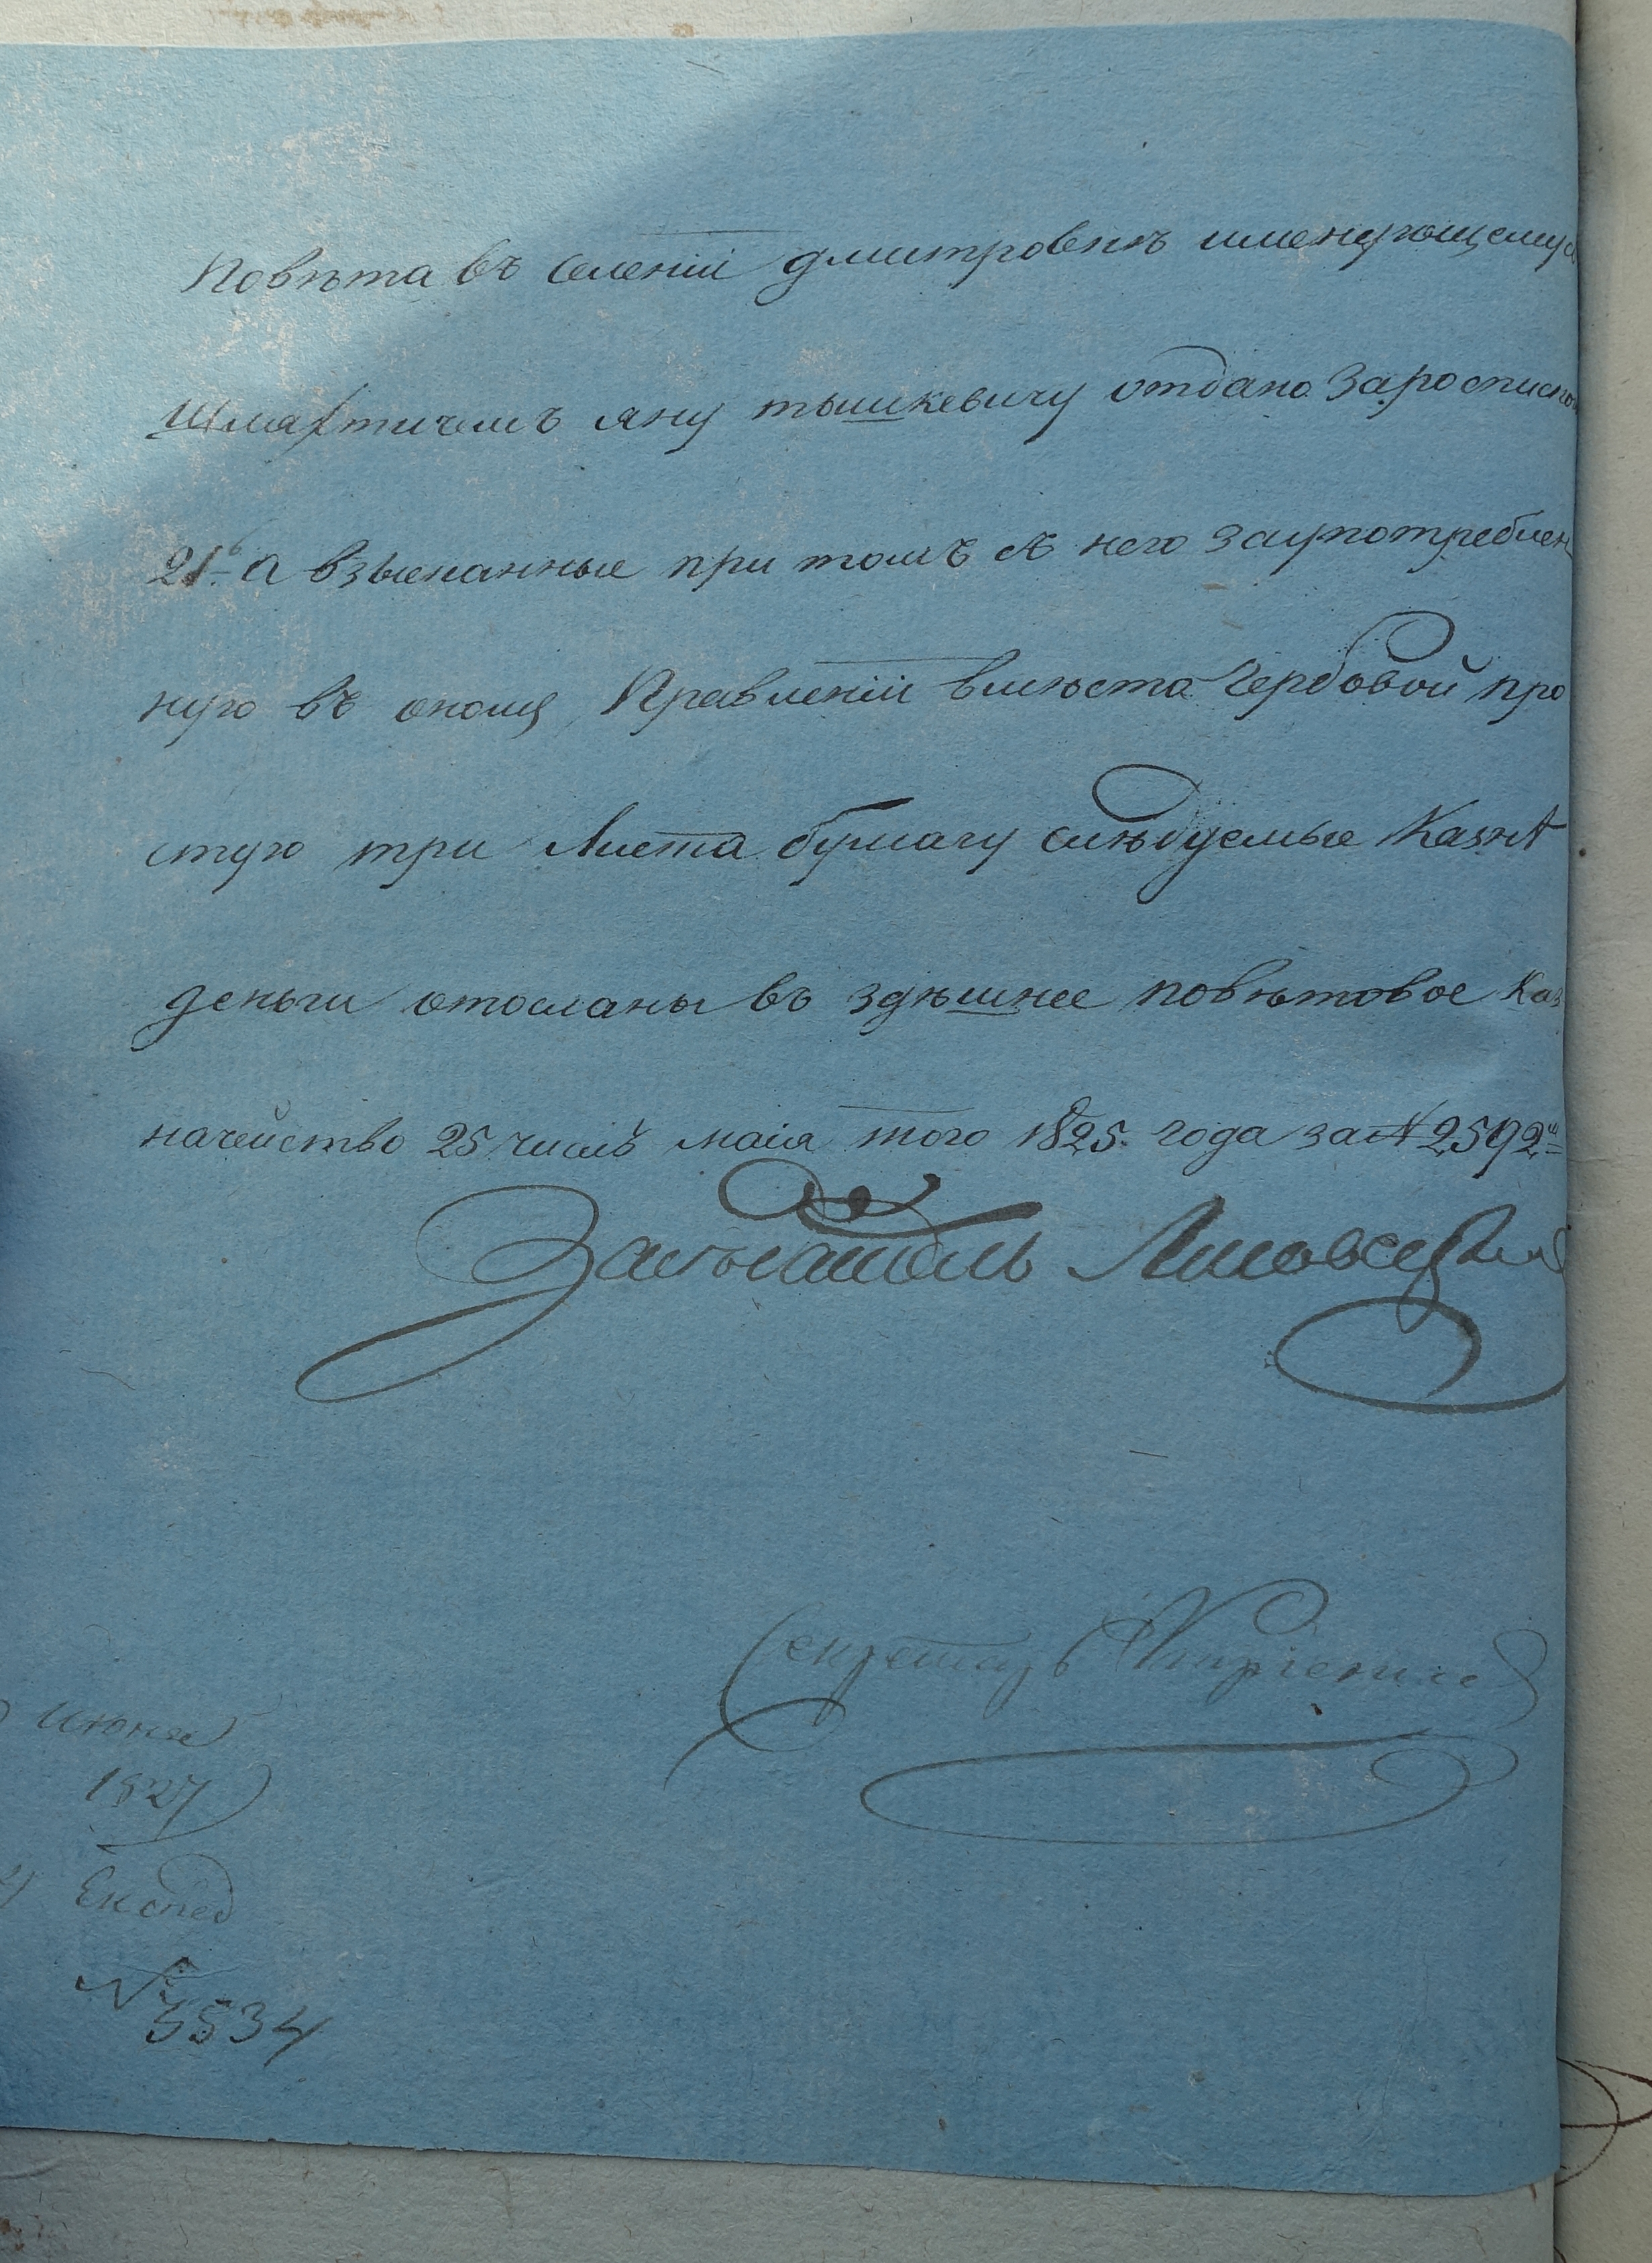 Повѣта въ селеніи дмитровкѣ именующемус
Шляхтичемъ яну тышкевичу отдано заросписко
21го а взысканные при томъ съ него заупотреблен
ную въ ономъ Правленіи вмѣста Гербовой про
стую три листа бумагу слѣдуемые Казнѣ
деньги отосланы въ здѣшнее повѣтовое Каз
начейство 25 числѣ маія того 1825. года за № 2592м
Засѣдатель
Секретарь
Июня
1827
Експед
№ 3534